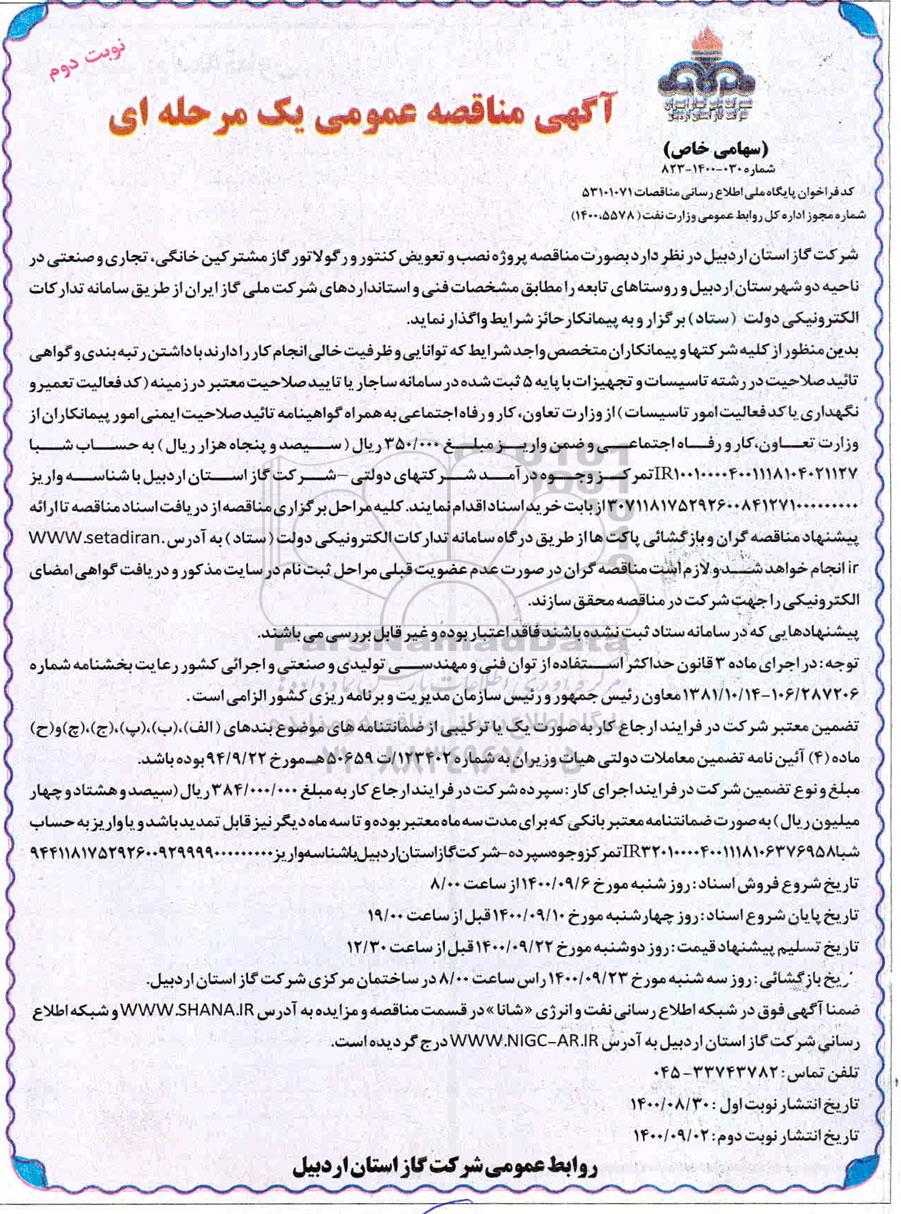 نوبت دوم
شرکت ملی گاز ایران
شرکت گاز استان اردبیل
آگهی مناقصه عمومی یک مرحله ای
(سهامی خاص)
شماره ۰۳۰-۱۴۰۰-۸۲۳
کد فراخوان پایگاه ملی اطلاع رسانی مناقصات ۵۳۱۰۱۰۷۱
شماره مجوز اداره کل روابط عمومی وزارت نفت (۱۴۰۰.۵۵۷۸)
شرکت گاز استان اردبیل در نظر دارد بصورت مناقصه پروژه نصب و تعویض کنتور و رگولاتور گاز مشترکین خانگی، تجاری و صنعتی در
ناحیه دو شهرستان اردبیل و روستاهای تابعه را مطابق مشخصات فنی و استانداردهای شرکت ملی گاز ایران از طریق سامانه تدارکات
الکترونیکی دولت (ستاد) برگزار و به پیمانکار حائز شرایط واگذار نماید.
بدین منظور از کلیه شرکتها و پیمانکاران متخصص واجد شرایط که توانایی و ظرفیت خالی انجام کار را دارند با داشتن رتبه بندی و گواهی
تائید صلاحیت در رشته تاسیسات و تجهیزات با پایه ۵ ثبت شده در سامانه ساجار یا تایید صلاحیت معتبر در زمینه (کد فعالیت تعمیر و
نگهداری یا کد فعالیت امور تاسیسات) از وزارت تعاون، کار و رفاه اجتماعی به همراه گواهینامه تائید صلاحیت ایمنی امور پیمانکاران از
وزارت تعاون، کار و رفاه اجتماعی و ضمن واریز مبلغ ۳۵۰/۰۰۰ ریال (سیصد و پنجاه هزار ریال) به حساب شبا
IR۱۰۰۱۰۰۰۰۴۰۰۱۱۱۸۱۰۴۰۲۱۱۲۷ تمرکز وجوه درآمد شرکتهای دولتی – شرکت گاز استان اردبیل با شناسه واریز
۳۰۷۱۱۸۱۷۵۲۹۲۶۰۰۸۴۱۲۷۱۰۰۰۰۰۰۰۰۰ از بابت خرید اسناد اقدام نمایند. کلیه مراحل برگزاری مناقصه از دریافت اسناد مناقصه تا ارائه
پیشنهاد مناقصه گران و بازگشائی پاکت ها از طریق درگاه سامانه تدارکات الکترونیکی دولت (ستاد) به آدرس WWW.setadiran.
ir انجام خواهد شد و لازم است مناقصه گران در صورت عدم عضویت قبلی مراحل ثبت نام در سایت مذکور و دریافت گواهی امضای
الکترونیکی را جهت شرکت در مناقصه محقق سازند.
پیشنهادهایی که در سامانه ستاد ثبت نشده باشند فاقد اعتبار بوده و غیر قابل بررسی می باشند.
ParsNamadData
توجه: در اجرای ماده ۳ قانون حداکثر استفاده از توان فنی و مهندسی تولیدی و صنعتی و اجرائی کشور رعایت بخشنامه شماره
۱۰۶/۲۸۷۲۰۶-۱۳۸۱/۱۰/۱۴ معاون رئیس جمهور و رئیس سازمان مدیریت و برنامه ریزی کشور الزامی است.
تضمین معتبر شرکت در فرایند ارجاع کار به صورت یک یا ترکیبی از ضمانتنامه های موضوع بندهای (الف)،(ب)،(پ)،(ج)،(چ)و(ح)
ماده (۴) آئین نامه تضمین معاملات دولتی هیات وزیران به شماره ۱۲۳۴۰۲/ت ۵۰۶۵۹هـ مورخ ۹۴/۹/۲۲ بوده باشد.
مبلغ و نوع تضمین شرکت در فرایند اجرای کار: سپرده شرکت در فرایند ارجاع کار به مبلغ ۳۸۴/۰۰۰/۰۰۰ ریال (سیصد و هشتاد و چهار
میلیون ریال) به صورت ضمانتنامه معتبر بانکی که برای مدت سه ماه معتبر بوده و تا سه ماه دیگر نیز قابل تمدید باشد و یا واریز به حساب
شبا IR۳۲۰۱۰۰۰۰۴۰۰۱۱۱۸۱۰۶۳۷۶۹۵۸ تمرکز وجوه سپرده – شرکت گاز استان اردبیل با شناسه واریز ۹۴۴۱۱۸۱۷۵۲۹۲۶۰۰۹۲۹۹۹۹۰۰۰۰۰۰۰۰۰
تاریخ شروع فروش اسناد: روز شنبه مورخ ۱۴۰۰/۰۹/۶ از ساعت ۸/۰۰
تاریخ پایان شروع اسناد: روز چهارشنبه مورخ ۱۴۰۰/۰۹/۱۰ قبل از ساعت ۱۹/۰۰
تاریخ تسلیم پیشنهاد قیمت: روز دوشنبه مورخ ۱۴۰۰/۰۹/۲۲ قبل از ساعت ۱۲/۳۰
ریخ بازگشائی: روز سه شنبه مورخ ۱۴۰۰/۰۹/۲۳ راس ساعت ۸/۰۰ در ساختمان مرکزی شرکت گاز استان اردبیل.
ضمنا آگهی فوق در شبکه اطلاع رسانی نفت و انرژی «شانا» در قسمت مناقصه و مزایده به آدرس WWW.SHANA.IR و شبکه اطلاع
رسانی شرکت گاز استان اردبیل به آدرس WWW.NIGC-AR.IR درج گردیده است.
تلفن تماس: ۳۳۷۴۳۷۸۲-۰۴۵
تاریخ انتشار نوبت اول: ۱۴۰۰/۰۸/۳۰
تاریخ انتشار نوبت دوم: ۱۴۰۰/۰۹/۰۲
روابط عمومی شرکت گاز استان اردبیل